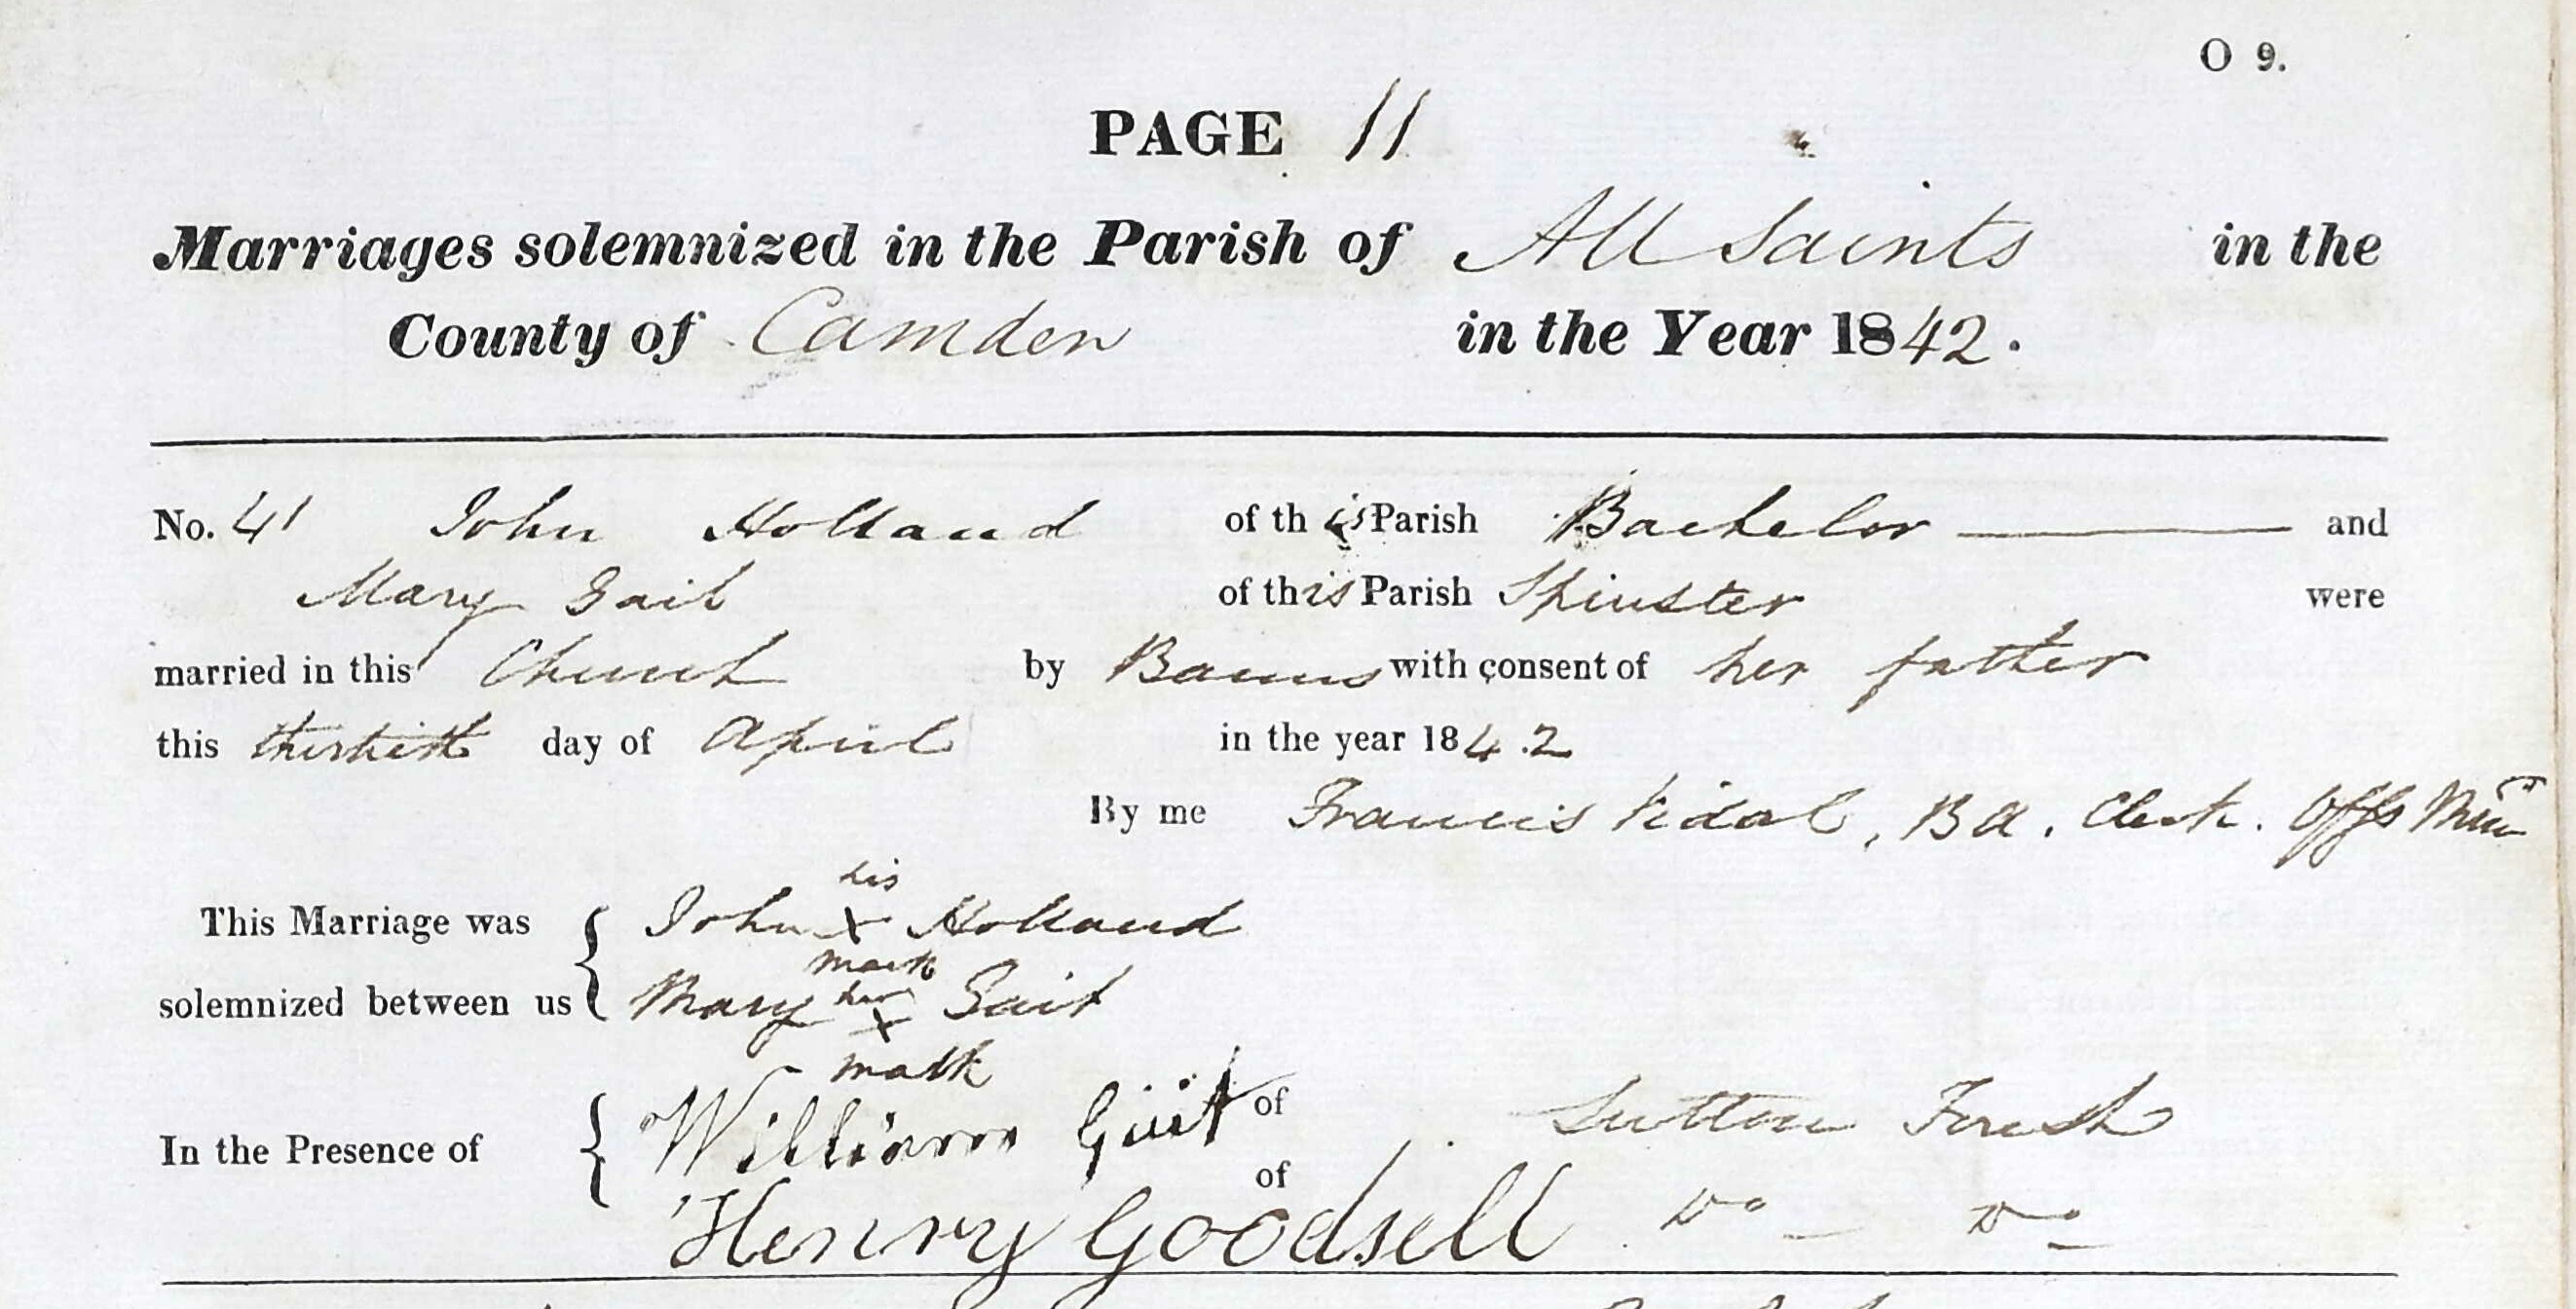 O 9.
PAGE 11
Marriages solemnized in the Parish of All Saints in the
County of Camden in the Year 1842.
No. 41 John Holland of this Parish Bachelor and
Mary Gait of this Parish Spinster were
married in this Church by Banns with consent of her father
this thirtieth day of April in the year 1842
By me Francis Vidal, BA. Clerk. Offg Minr
his
This Marriage was John X Holland
mark
solemnized between us Mary her Gait
X
mark
In the Presence of William Gait of Sutton Forest
Henry Goodsell of Do Do